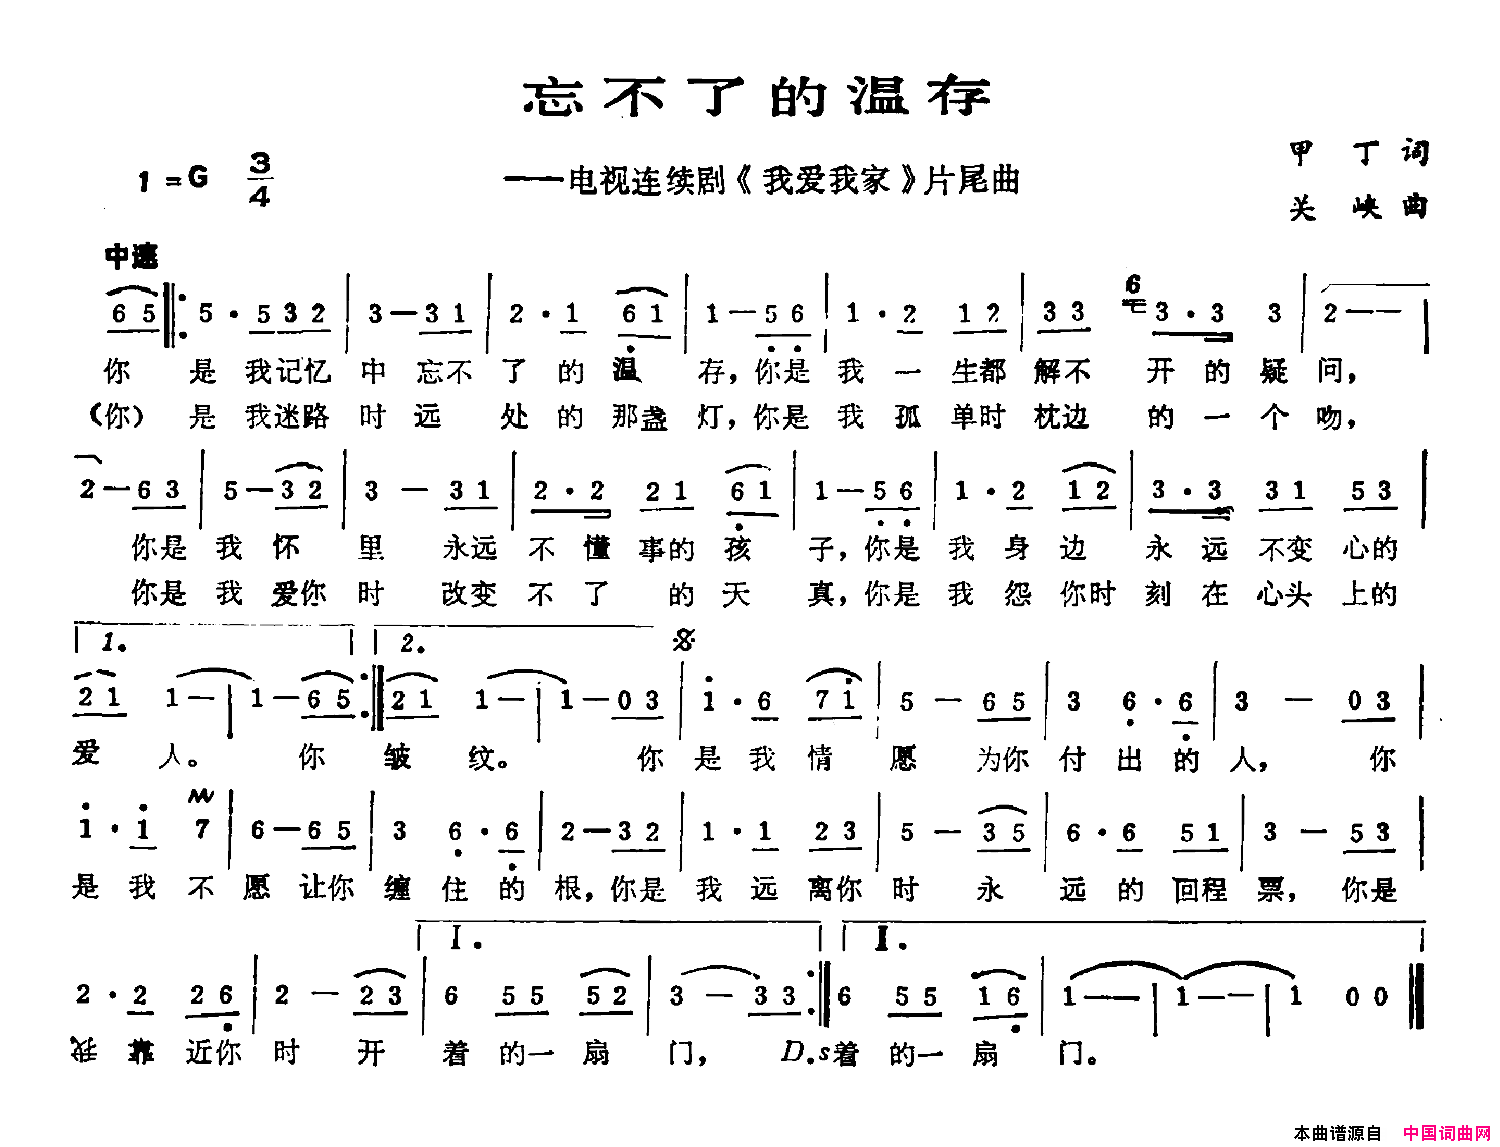 忘不了的温存
1=G 3/4
——电视连续剧《我爱我家》片尾曲
甲丁词
关峡曲
中速
6
65 5·532 3—31 2·1 61 1—56 1·2 12 33 3·3 3 2——
你是我记忆中忘不了的温存,你是我一生都解不开的疑问,
(你)是我迷路时远处的那盏灯,你是我孤单时枕边的一个吻,
2—63 5—32 3—31 2·2 21 61 1—56 1·2 12 3·3 31 53
你是我怀里永远不懂事的孩子,你是我身边永远不变心的
你是我爱你时改变不了的天真,你是我怨你时刻在心头上的
1. 2.
21 1— 1—65 21 1— 1—03 1·6 71 5—65 3 6·6 3—03
爱人。你皱纹。你是我情愿为你付出的人,你
1·1 7 6—65 3 6·6 2—32 1·1 23 5—35 6·6 51 3—53
是我不愿让你缠住的根,你是我远离你时永远的回程票,你是
I. II.
2·2 26 2—23 6 55 52 3—33 6 55 16 1—— 1—— 1 0 0
我靠近你时开着的一扇门, D.s着的一扇门。
本曲谱源自 中国词曲网